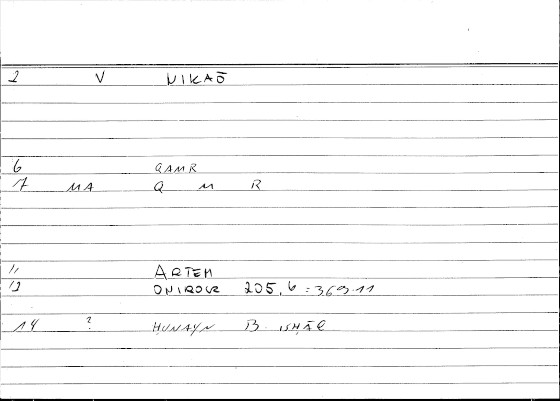 2 V NIKAŌ
6 QAMR
7 MA Q M R
11 ARTEM
12 ONIROCR 205,6 = 369.11
14 ? ḤUNAYN B. ISḤĀQ